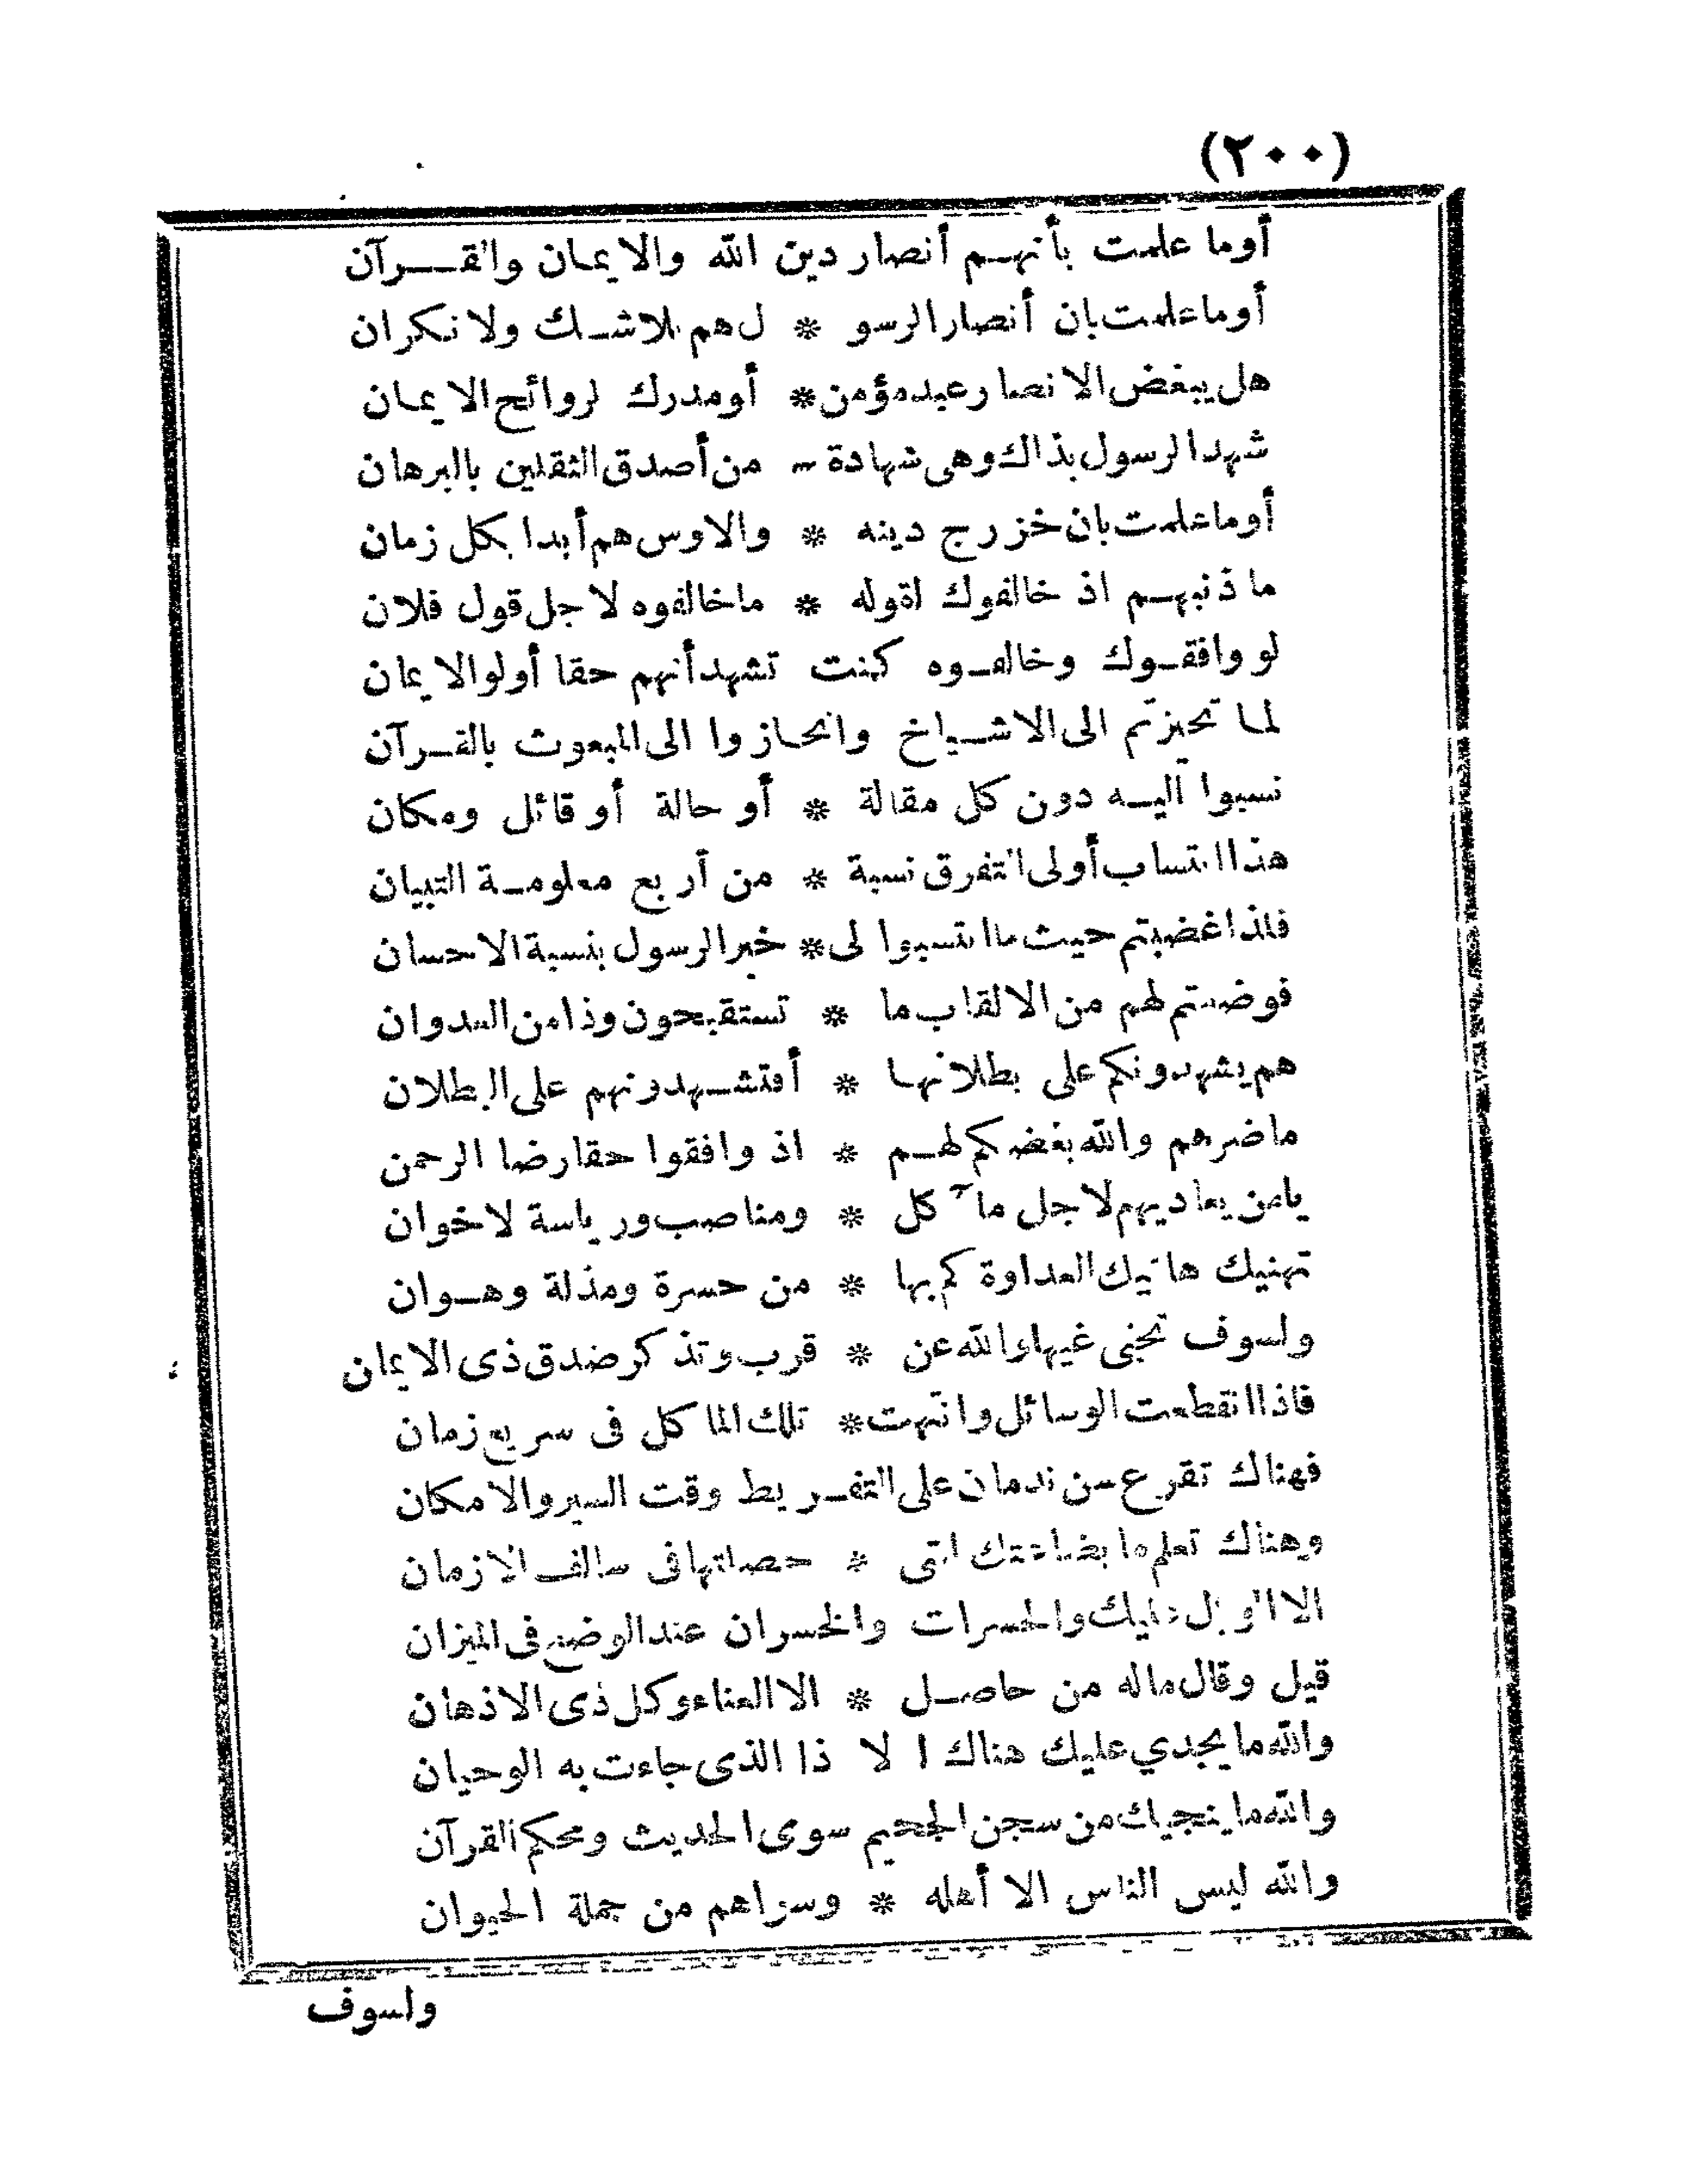 (٢٠٠)
أوما علمت بأنهم أنصار دين الله والايمان والقرآن
أوما علمت بان أنصار الرسو * ل هم بلا شك ولا نكران
هل يبغض الانصار عبد مؤمن * أو مدرك لروائح الايمان
شهد الرسول بذاك وهى شهادة * من أصدق الثقلين بالبرهان
أوما علمت بان خزرج دينه * والاوس هم أبدا بكل زمان
ما ذنبهم اذ خالفوك لقوله * ما خالفوه لاجل قول فلان
لو وافقوك وخالفوه كنت تشهد أنهم حقا أولو الايمان
لما تحيزتم الى الاشياخ وانحازوا الى المبعوث بالقرآن
نسبوا اليه دون كل مقالة * أو حالة أو قائل ومكان
هذا انتساب أولى التفرق نسبة * من أربع معلومة التبيان
فلذا غضبتم حيث ما انتسبوا لى * خبر الرسول بنسبة الاحسان
فوضعتم لهم من الالقاب ما * تستقبحون وذا من العدوان
هم يشهدونكم على بطلانها * أفتشهدونهم على البطلان
ما ضرهم والله بغضكم لهم * اذ وافقوا حقا رضا الرحمن
يا من يعاديهم لاجل مآكل * ومناصب ورياسة لاخوان
تهنيك هاتيك العداوة كم بها * من حسرة ومذلة وهوان
ولسوف تجنى غيها والله عن * قرب وتذكر ضدق ذى الايمان
فاذا انقطعت الوسائل وانتهت * تلك الماكل فى سريع زمان
فهناك تقرع سن ندمان على التفريط وقت السير والامكان
وهناك تعلم ما بضاعتك التى * حصلتها فى سالف الازمان
الا الوبال عليك والحسرات والخسران عند الوضع فى الميزان
قيل وقال ماله من حاصل * الا العناء وكل ذى الاذهان
والله ما يجدي عليك هناك ا لا ذا الذى جاءت به الوحيان
والله ما ينجيك من سجن الجحيم سوى الحديث ومحكم القرآن
والله ليس الناس الا أهله * وسواهم من جملة الحيوان
ولسوف